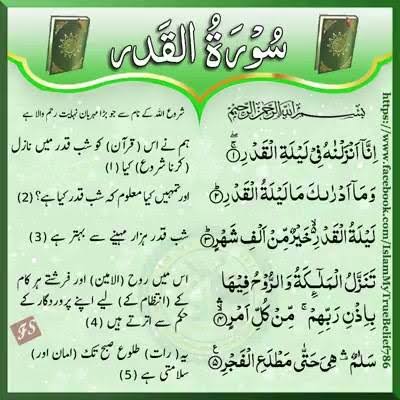 سُوْرَةُ الْقَدْر
بِسْمِ اللّٰهِ الرَّحْمٰنِ الرَّحِيْمِ
شروع اللہ کے نام سے جو بڑا مہربان نہایت رحم والا ہے
اِنَّاۤ اَنْزَلْنٰهُ فِیْ لَیْلَةِ الْقَدْرِ ۚۖ ﴿۱﴾
ہم نے اس (قرآن) کو شب قدر میں نازل
(کرنا شروع) کیا (۱)
وَمَاۤ اَدْرٰىكَ مَا لَیْلَةُ الْقَدْرِ ؕ ﴿۲﴾
اور تمہیں کیا معلوم کہ شب قدر کیا ہے؟ (2)
لَیْلَةُ الْقَدْرِ ۙ خَیْرٌ مِّنْ اَلْفِ شَهْرٍ ؕ ﴿۳﴾
شب قدر ہزار مہینے سے بہتر ہے (3)
تَنَزَّلُ الْمَلٰٓىِٕكَةُ وَالرُّوْحُ فِیْهَا
بِاِذْنِ رَبِّهِمْ ۚ مِنْ كُلِّ اَمْرٍ ۙۛ ﴿۴﴾
اس میں روح (الامین) اور فرشتے ہر کام
کے (انتظام کے) لیے اپنے پروردگار کے
حکم سے اترتے ہیں (4)
سَلٰمٌ ۛ هِیَ حَتّٰى مَطْلَعِ الْفَجْرِ ﴿۵﴾
یہ (رات) طلوع صبح تک (امان اور)
سلامتی ہے (5)
https://www.facebook.com/IslamMyTrueBelief786
FS